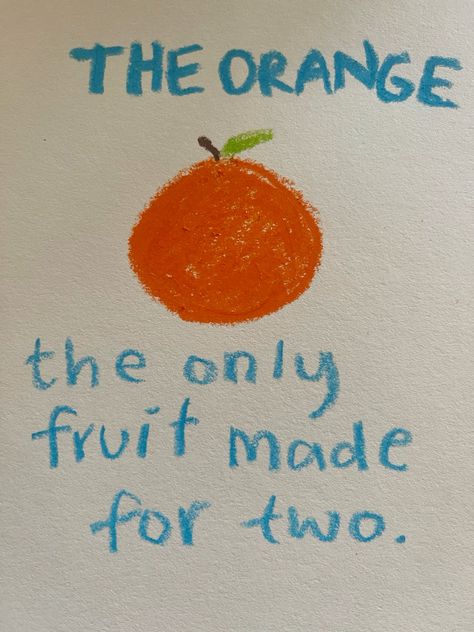 THE ORANGE
the only
fruit made
for two.